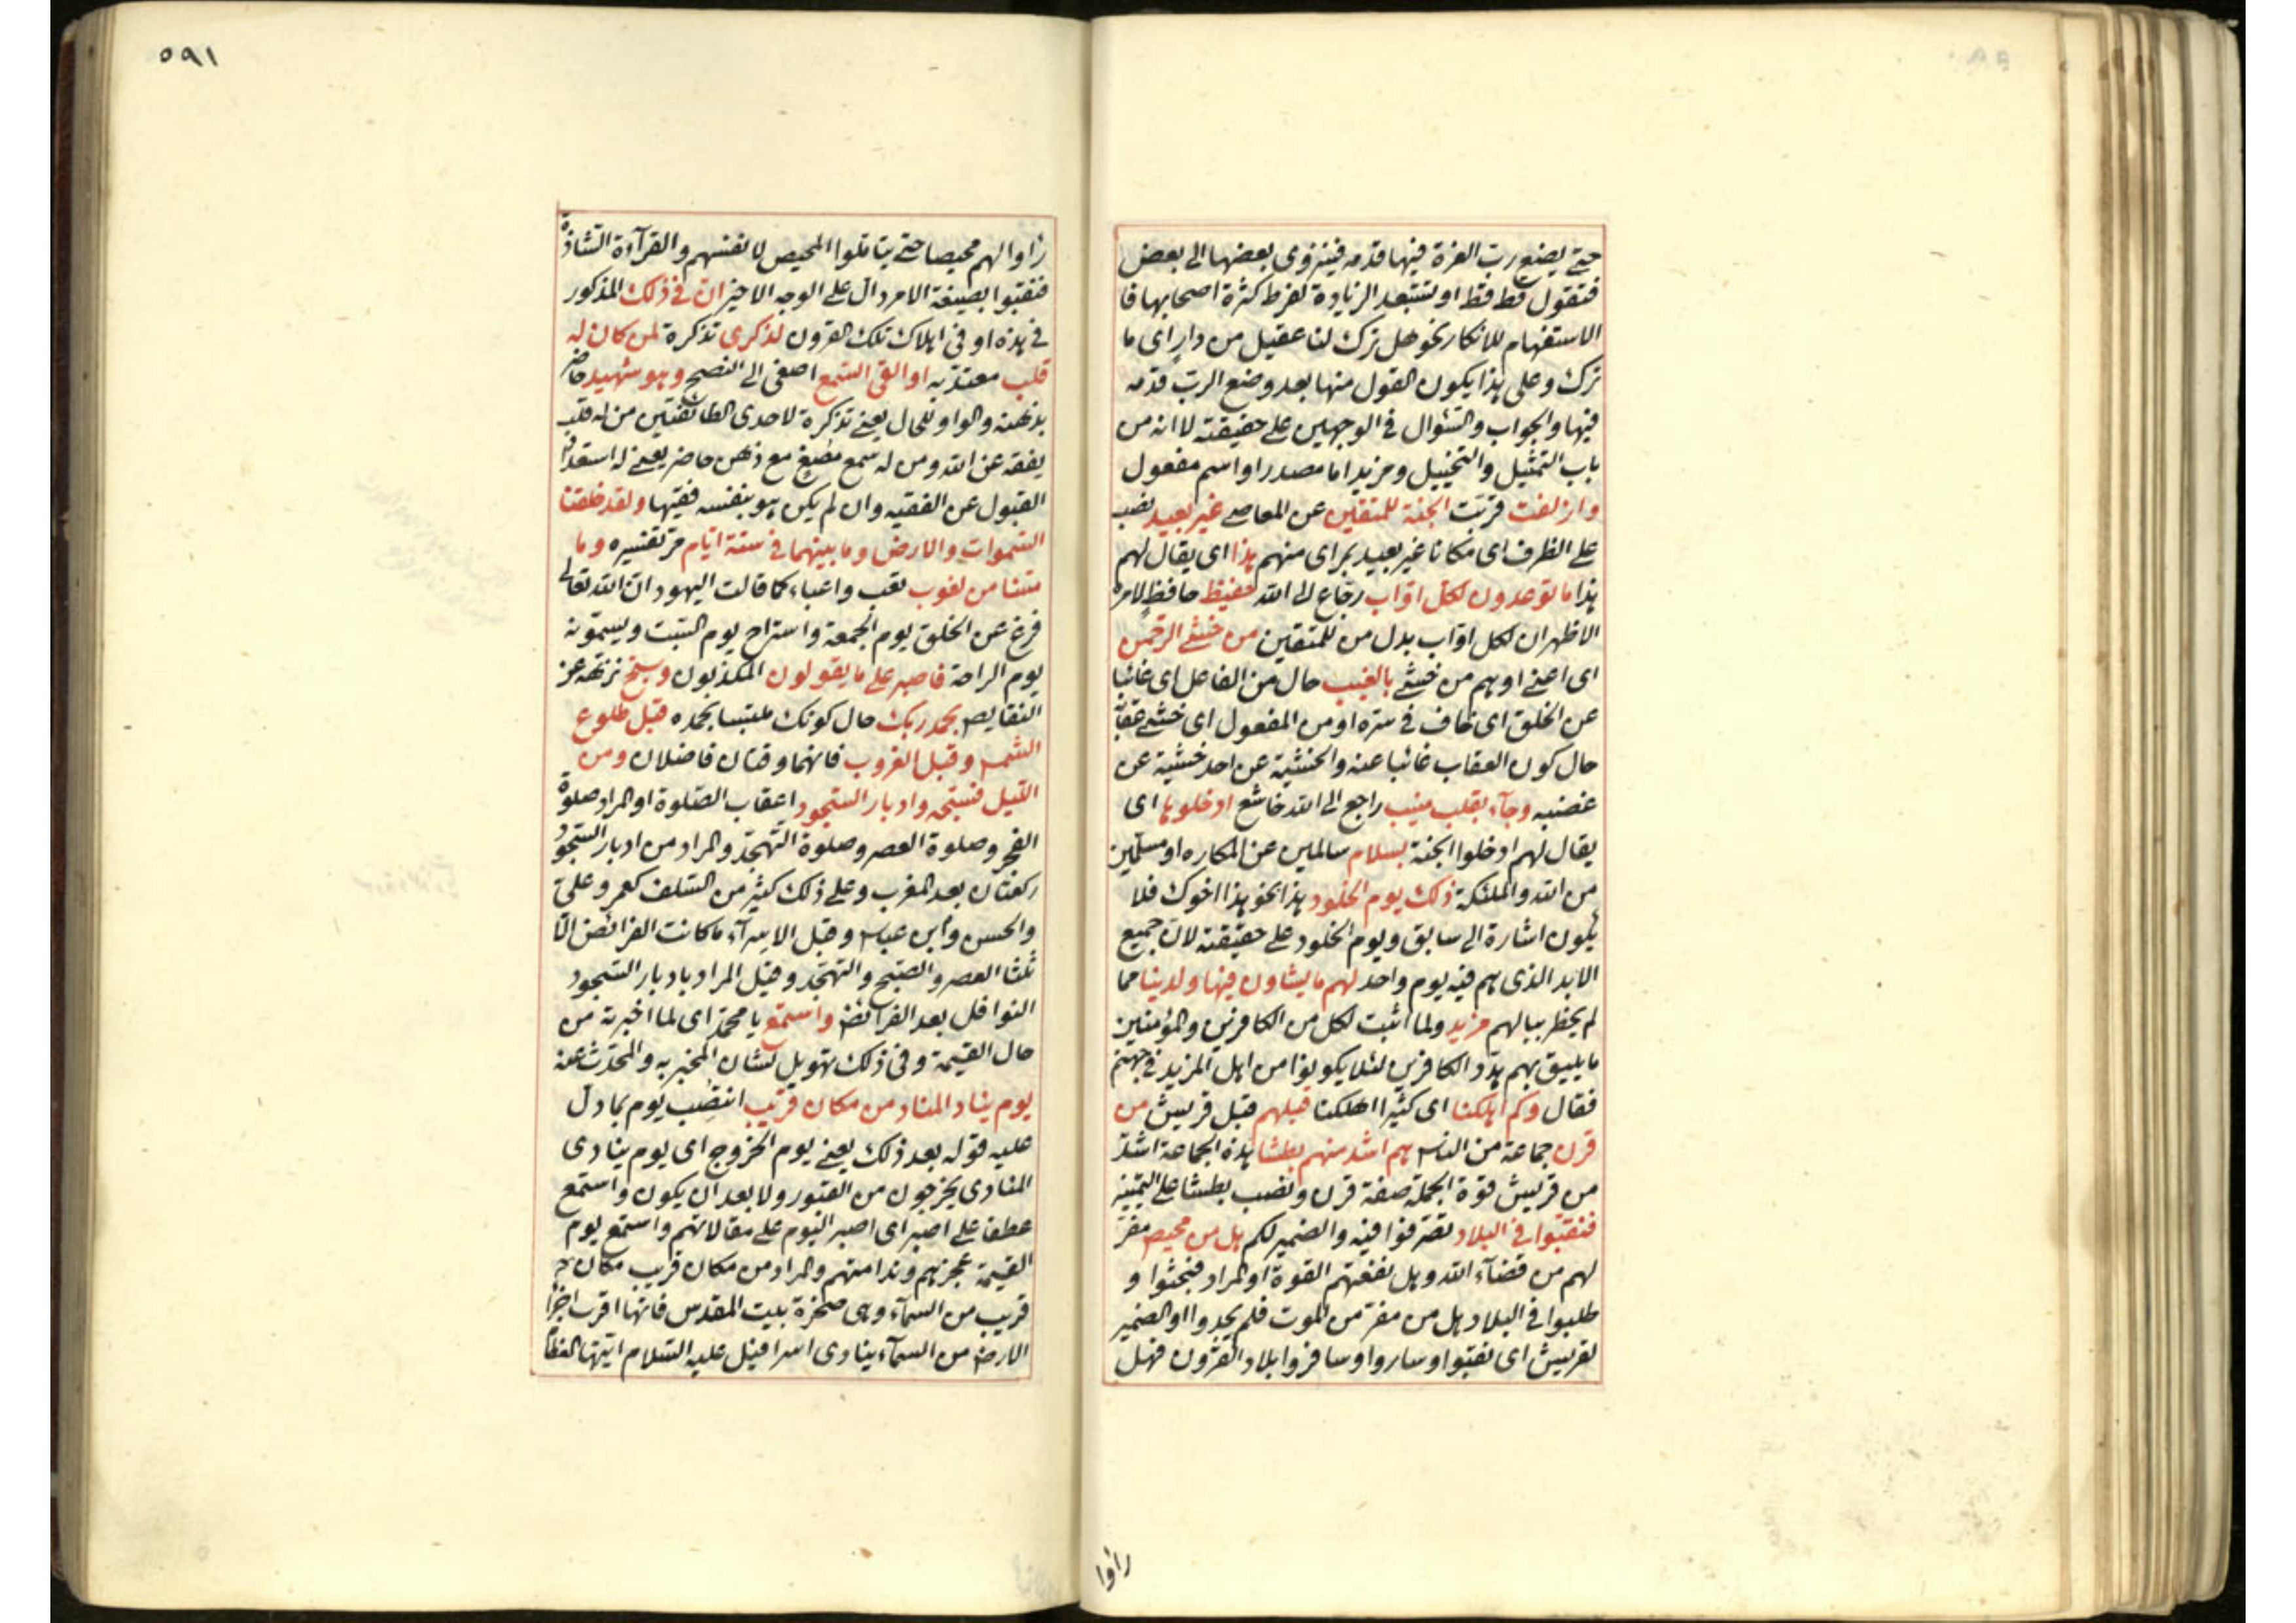 حتى يضع رب العزة فيها قدمه فينزوى بعضها الى بعض
فتقول قط قط او تستبعد الزيادة لفرط كثرة اصحابها فا
الاستفهام للانكار نحو هل ترك لنا عقيل من دار اى ما
ترك وعلى هذا يكون القول منها بعد وضع الرب قدمه
فيها والجواب والسّئوال فى الوجهين على حقيقته لا انه من
باب التمثيل والتخييل ومزيد اما مصدر او اسم مفعول
وازلفت قربت الجنة للمتقين عن المعاصى غير بعيد نصب
على الظرف اى مكانا غير بعيد بمراى منهم هذا اى يقال لهم
هذا ما توعدون لكل اوّاب رجّاع الى الله حفيظ حافظ لامره
الاظهر ان لكل اوّاب بدل من للمتقين من خشى الرحمن
اى اعنى او هم من خشى بالغيب حال من الفاعل اى غائبا
عن الخلق اى خاف فى سرّه او من المفعول اى خشى عقابه
حال كون العقاب غائبا عنه والخشية عن احد خشية عن
غضبه وجآء بقلب منيب راجع الى الله خاشع ادخلوها اى
يقال لهم ادخلوا الجنة بسلام سالمين عن المكاره او مسلّمين
من الله والملئكة ذلك يوم الخلود هذا نحو هذا اخوك فلا
يكون اشارة الى سابق ويوم الخلود على حقيقته لانّ جميع
الابد الذى هم فيه يوم واحد لهم ما يشاون فيها ولدينا مما
لم يخطر ببالهم مزيد ولما اثبت لكل من الكافرين والمؤمنين
ما يليق بهم هدّد الكافرين لئلا يكونوا من اهل المزيد فى جهنم
فقال وكم اهلكنا اى كثيرا اهلكنا قبلهم قبل قريش من
قرن جماعة من الناس هم اشد منهم بطشا هذه الجماعة اشدّ
من قريش قوة الجملة صفة قرن ونصب بطشا على التمييز
فنقبوا فى البلاد تصرفوا فيه والضمير لكم هل من محيص مفرّ
لهم من قضآء الله وهل نفعتهم القوة او المراد فبحثوا و
طلبوا فى البلاد هل من مفر من الموت فلم يجدوا او الضمير
لقريش اى نقبوا وساروا وسافروا بلاد القرون فهل
رأوا
٥٩١
رأوا لهم محيصا حتى يتأملوا المحيص لانفسهم والقرآءة الشاذة
فنقبوا بصيغة الامر دالّ على الوجه الاخير ان فى ذلك المذكور
فى هذه او فى اهلاك تلك القرون لذكرى تذكرة لمن كان له
قلب معتدّ به او القى السّمع اصغى الى النصح وهو شهيد حاضر
بذهنه والواو للحال يعنى تذكرة لاحدى الطائفتين من له قلب
يفقه عن الله ومن له سمع مصغ مع ذهن حاضر يعنى له استعداد
القبول عن الفقيه وان لم يكن هو بنفسه فقيها ولقد خلقنا
السّموات والارض وما بينهما فى ستة ايّام مرّ تفسيره وما
مسّنا من لغوب تعب واعياء كما قالت اليهود انّ الله تعالى
فرغ عن الخلق يوم الجمعة واستراح يوم السّبت ويسمّونه
يوم الراحة فاصبر على ما يقولون المكذبون وسبّح نزّهه عن
النقايص بحمد ربك حال كونك ملتبسا بحمده قبل طلوع
الشمس وقبل الغروب فانهما وقتان فاضلان ومن
الليل فسبّحه وادبار السّجود اعقاب الصّلوة او المراد صلوة
الفجر وصلوة العصر وصلوة التّهجّد والمراد من ادبار السّجود
ركعتان بعد المغرب وعلى ذلك كثير من السّلف كعمر وعلىّ
والحسن وابن عباس وقبل الاسرآء ما كانت الفرائض الّا
ثلثا العصر والصّبح والتهجّد وقيل المراد بادبار السّجود
النوافل بعد الفرائض واستمع يا محمّد اى لما اخبرته من
حال القيمة وفى ذلك تهويل لشان المخبر به والمحدّث عنه
يوم يناد المناد من مكان قريب انتصب يوم بما دلّ
عليه قوله بعد ذلك يعنى يوم الخروج اى يوم ينادى
المنادى يخرجون من القبور ولا بعد ان يكون واستمع
عطفا على اصبر اى اصبر اليوم على مقالاتهم واستمع يوم
القيمة عجزهم وندامتهم والمراد من مكان قريب مكان
قريب من السمآء وهى صخرة بيت المقدس فانها اقرب اجزآ
الارض من السمآء ينادى اسرافيل عليه السّلام ايتها العظا